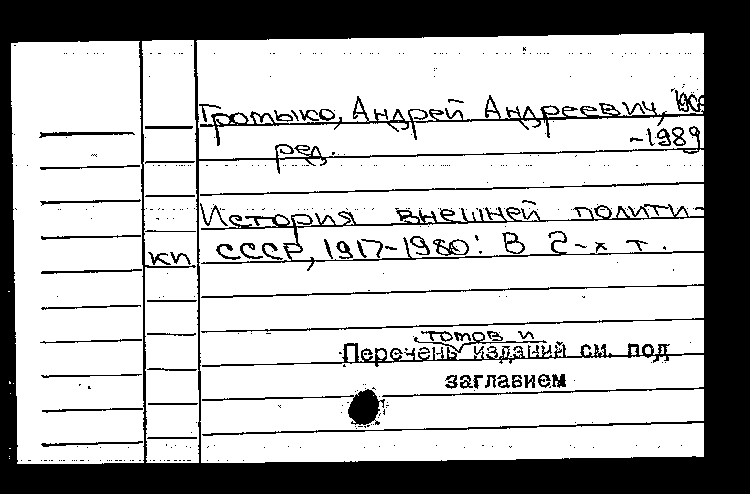 Громыко, Андрей Андреевич, 1909
-1989
ред.
История внешней полити-
кп СССР, 1917-1980: В 2-х т.
томов и
Перечень изданий см. под
заглавием